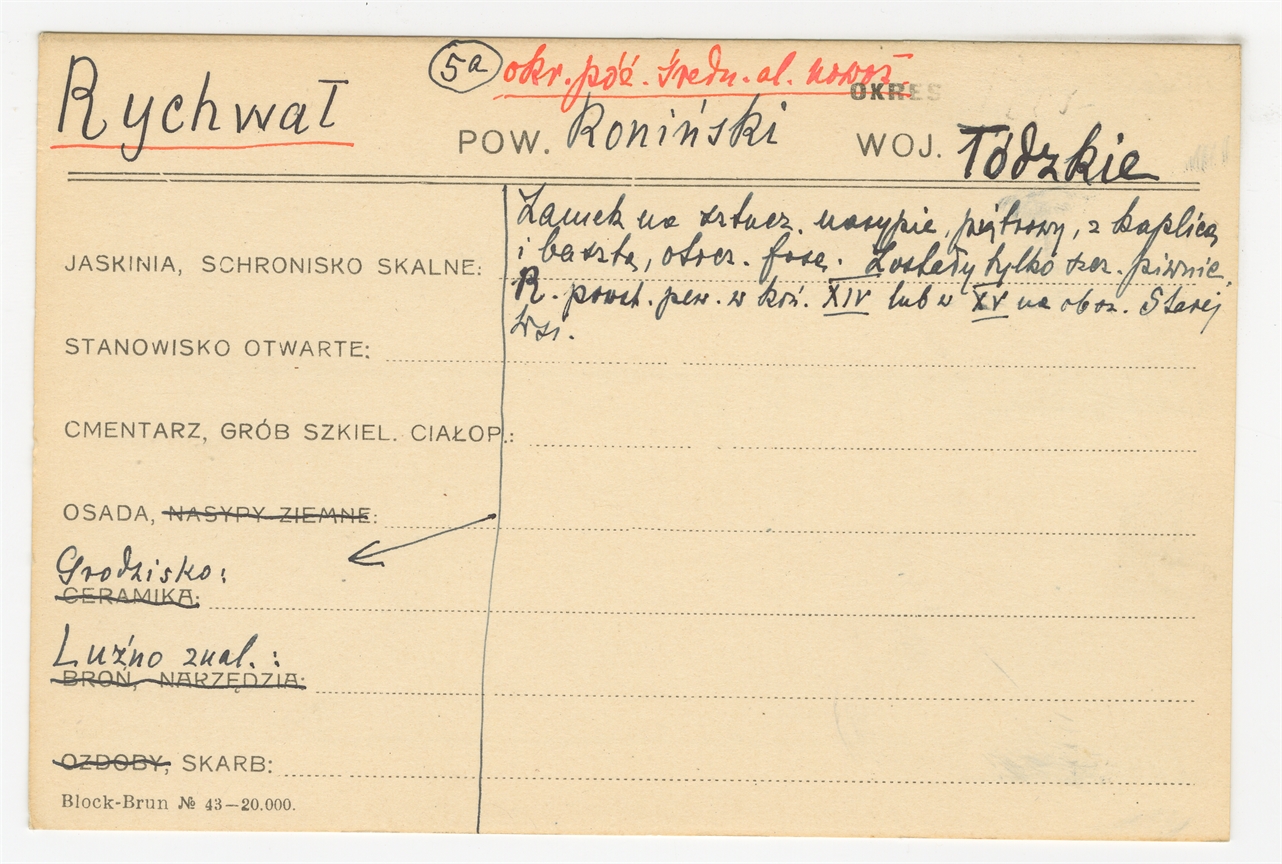 Rychwał
5a okr. póź. średn. al. nowoż.
OKRES
POW. Koniński WOJ. Łódzkie
Zamek na sztucz. nasypie, piętrowy, z kaplicą
i basztą, otocz. fosą. Zostały tylko szcz. piwnic.
R. powst. pew. w koń. XIV lub w XV na obsz. Starej
Wsi.
JASKINIA, SCHRONISKO SKALNE:
STANOWISKO OTWARTE:
CMENTARZ, GRÓB SZKIEL. CIAŁOP.:
OSADA, NASYPY ZIEMNE:
Grodzisko:
CERAMIKA:
Luźno znal.:
BROŃ, NARZĘDZIA:
OZDOBY, SKARB:
Block-Brun № 43—20.000.